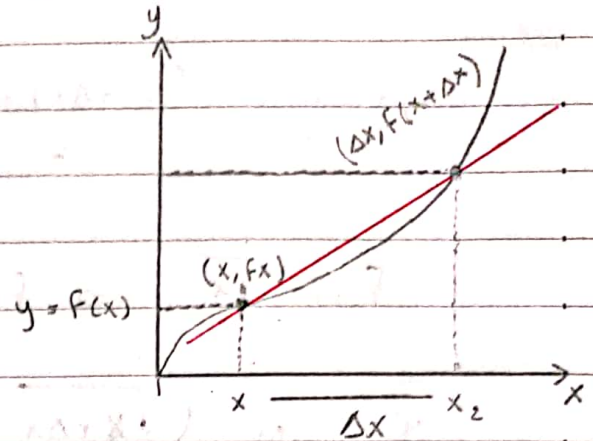 y
(Δx, F(x+Δx)
(x, Fx)
y = F(x)
x x₂ x
Δx